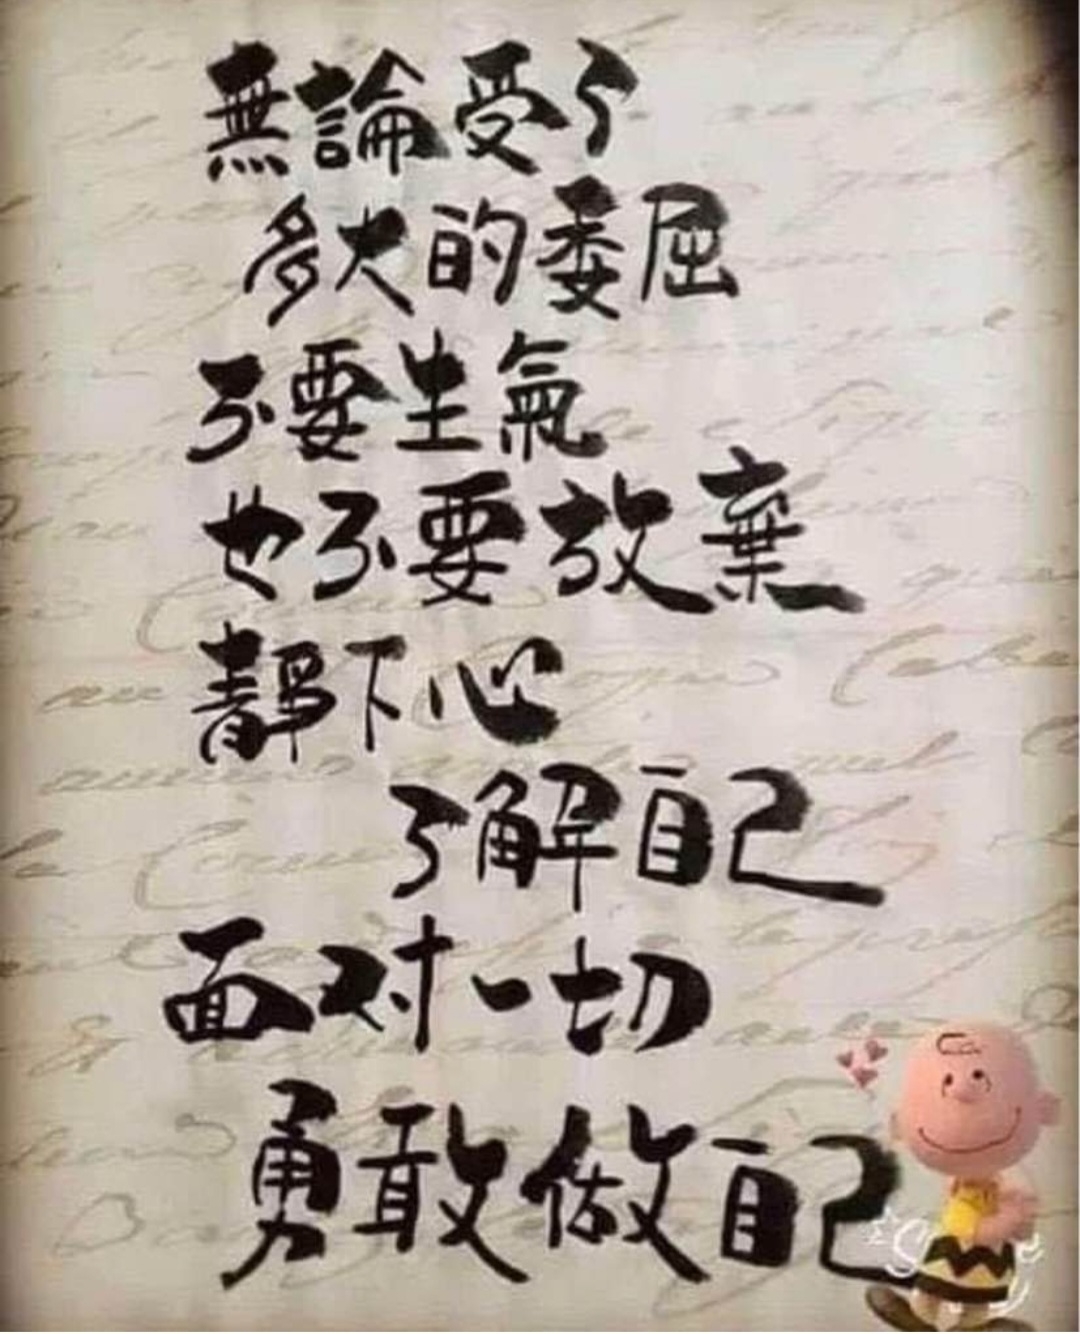 無論受了
多大的委屈
不要生氣
也不要放棄
靜下心
了解自己
面对一切
勇敢做自己